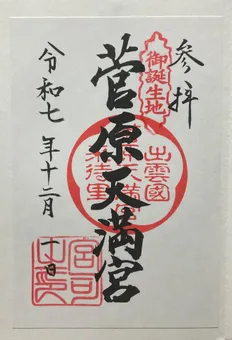 参拝
御誕生地
菅原天満宮
出雲國
令和七年十二月十日
宮司之印